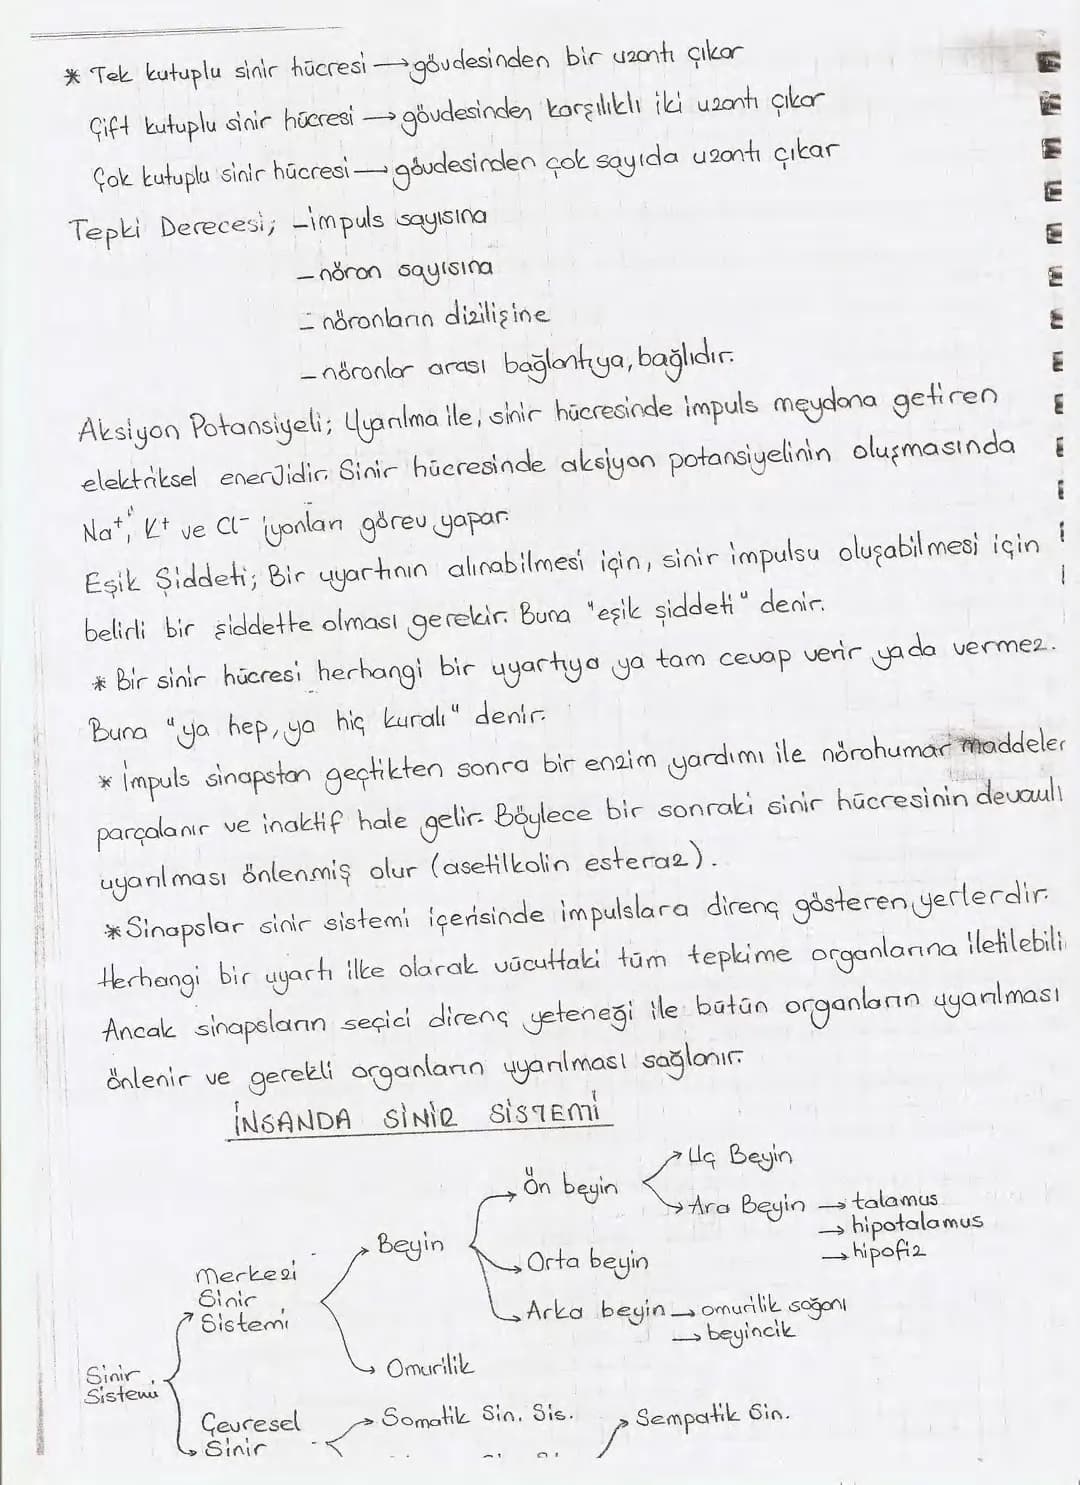 * Tek kutuplu sinir hücresi → gövdesinden bir uzantı çıkar
Çift kutuplu sinir hücresi → gövdesinden karşılıklı iki uzantı çıkar
Çok kutuplu sinir hücresi → gövdesinden çok sayıda uzantı çıkar
Tepki Derecesi; - impuls sayısına
- nöron sayısına
- nöronların dizilişine
- nöronlar arası bağlantıya, bağlıdır.
Aksiyon Potansiyeli; Uyarılma ile, sinir hücresinde impuls meydana getiren
elektriksel enerjidir. Sinir hücresinde aksiyon potansiyelinin oluşmasında
Na⁺, K⁺ ve Cl⁻ iyonları görev yapar.
Eşik Şiddeti; Bir uyartının alınabilmesi için, sinir impulsu oluşabilmesi için
belirli bir şiddette olması gerekir. Buna "eşik şiddeti" denir.
* Bir sinir hücresi herhangi bir uyartıya ya tam cevap verir yada vermez.
Buna "ya hep, ya hiç kuralı" denir.
* İmpuls sinapstan geçtikten sonra bir enzim yardımı ile nörohumar maddeler
parçalanır ve inaktif hale gelir. Böylece bir sonraki sinir hücresinin devamlı
uyarılması önlenmiş olur (asetilkolin esteraz).
* Sinapslar sinir sistemi içerisinde impulslara direnç gösteren yerlerdir.
Herhangi bir uyartı ilke olarak vücuttaki tüm tepkime organlarına iletilebili
Ancak sinapsların seçici direnç yeteneği ile bütün organların uyarılması
önlenir ve gerekli organların uyarılması sağlanır.
İNSANDA SİNİR SİSTEMİ
→ Uç Beyin
→ Ön beyin
→ Ara Beyin → talamus
→ hipotalamus
→ hipofiz
→ Beyin
→ Orta beyin
Merkezi
Sinir
Sistemi
→ Arka beyin → omurilik soğanı
→ beyincik
→ Omurilik
Sinir
Sistemi
Çevresel
Sinir
→ Somatik Sin. Sis.
→ Sempatik Sin.